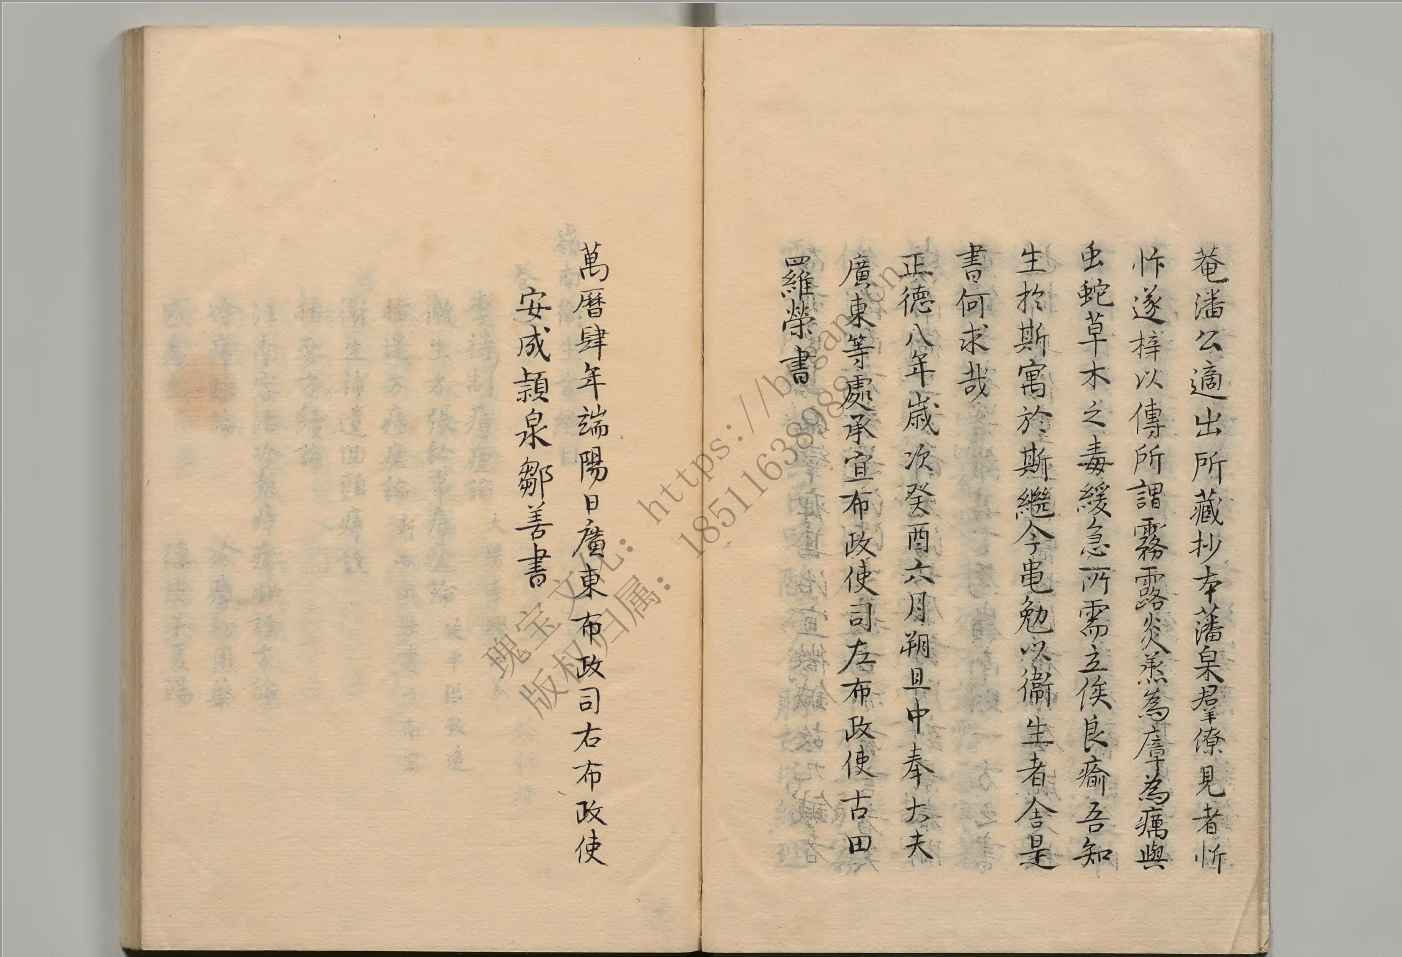 菴潘公適出所藏抄本藩臬羣僚見者忻
忭遂梓以傳所謂霧露炎蒸為瘴為癘與
虫蛇草木之毒緩急所需立俟良瘉吾知
生於斯寓於斯繼今黽勉以衞生者舍是
書何求哉
正德八年歲次癸酉六月朔旦中奉大夫
廣東等處承宣布政使司左布政使古田
羅榮書
萬曆肆年端陽日廣東布政司右布政使
安成頴泉鄒善書
瑰宝文化：https://bogan.com
版权归属：18511638989